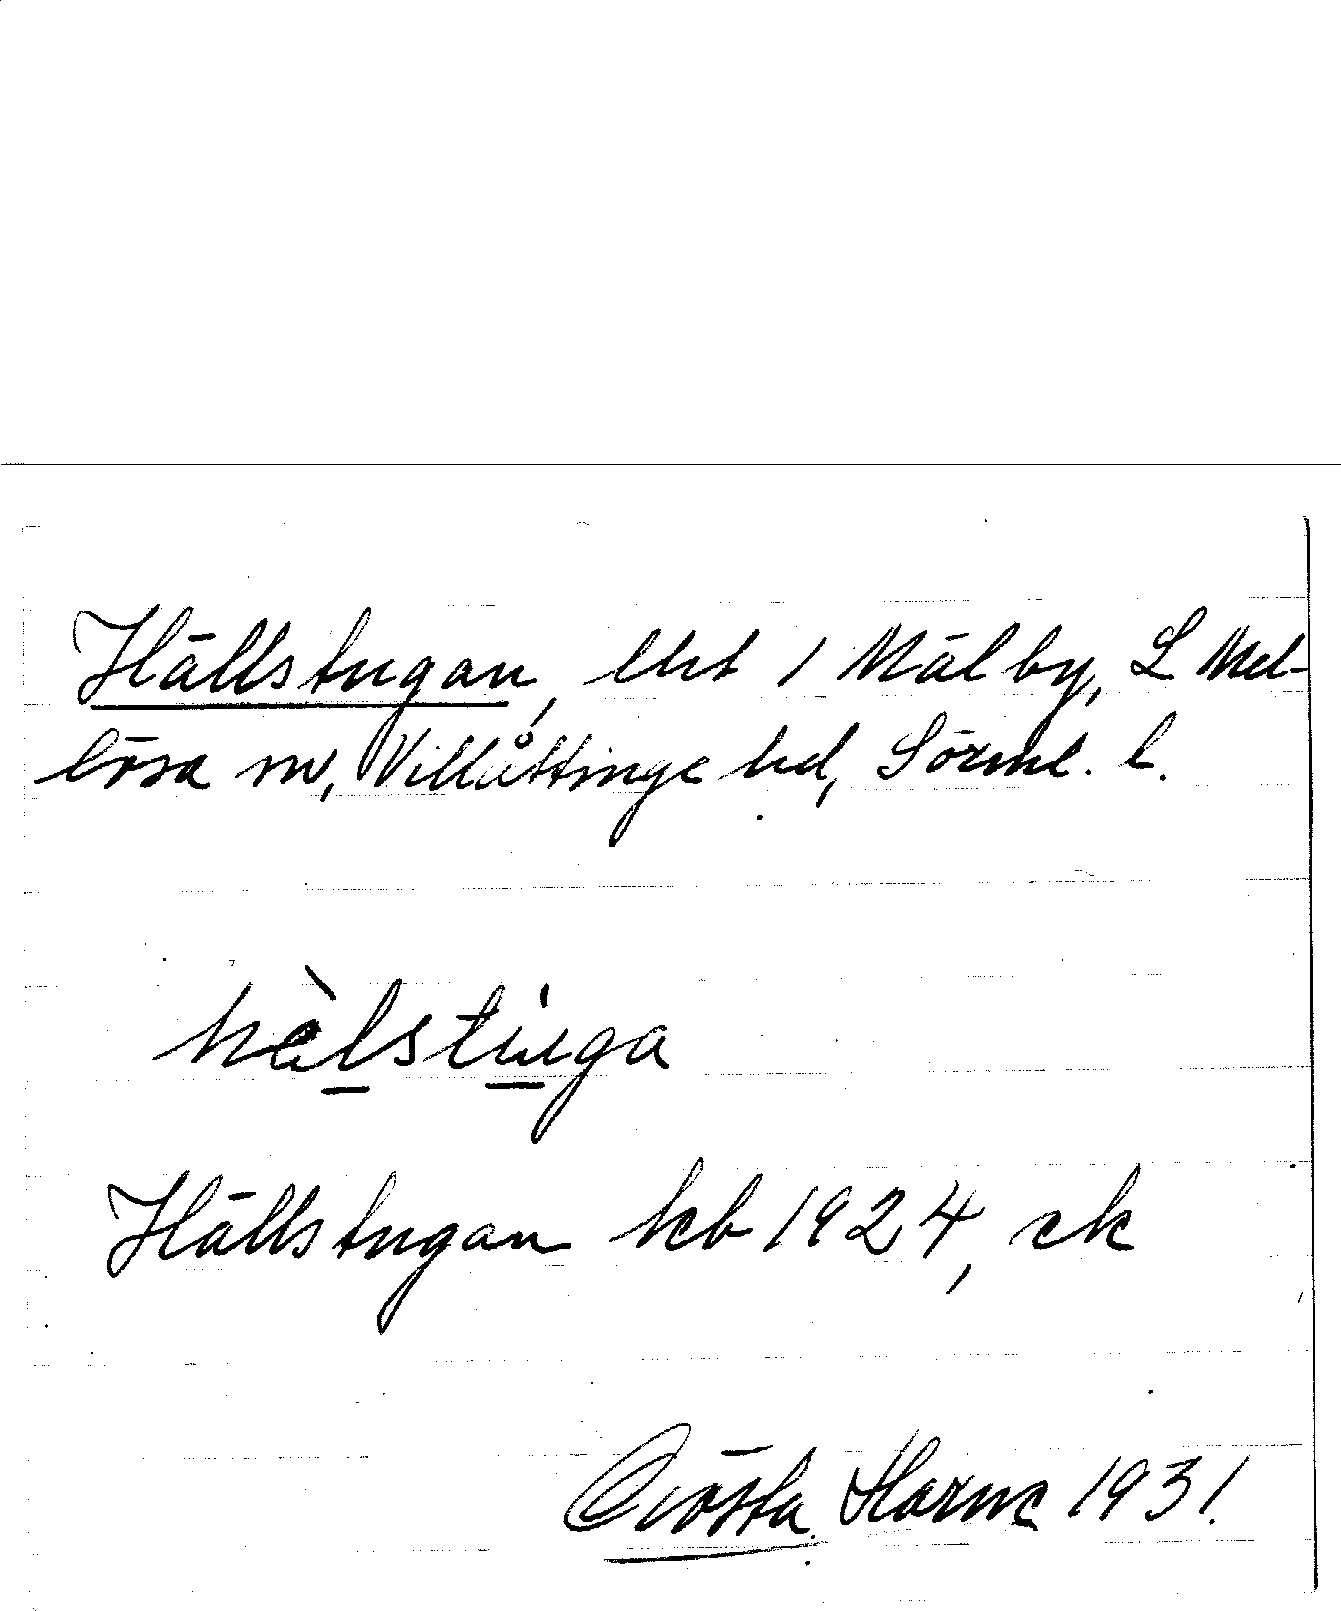 Hällstugan, lht / Mälby, L Mel-
lösa sn, Villåttinge hd, Sörml. l.
hɛ̀lstùga
Hällstugan kb 1924, ek
Gösta Harne 1931.